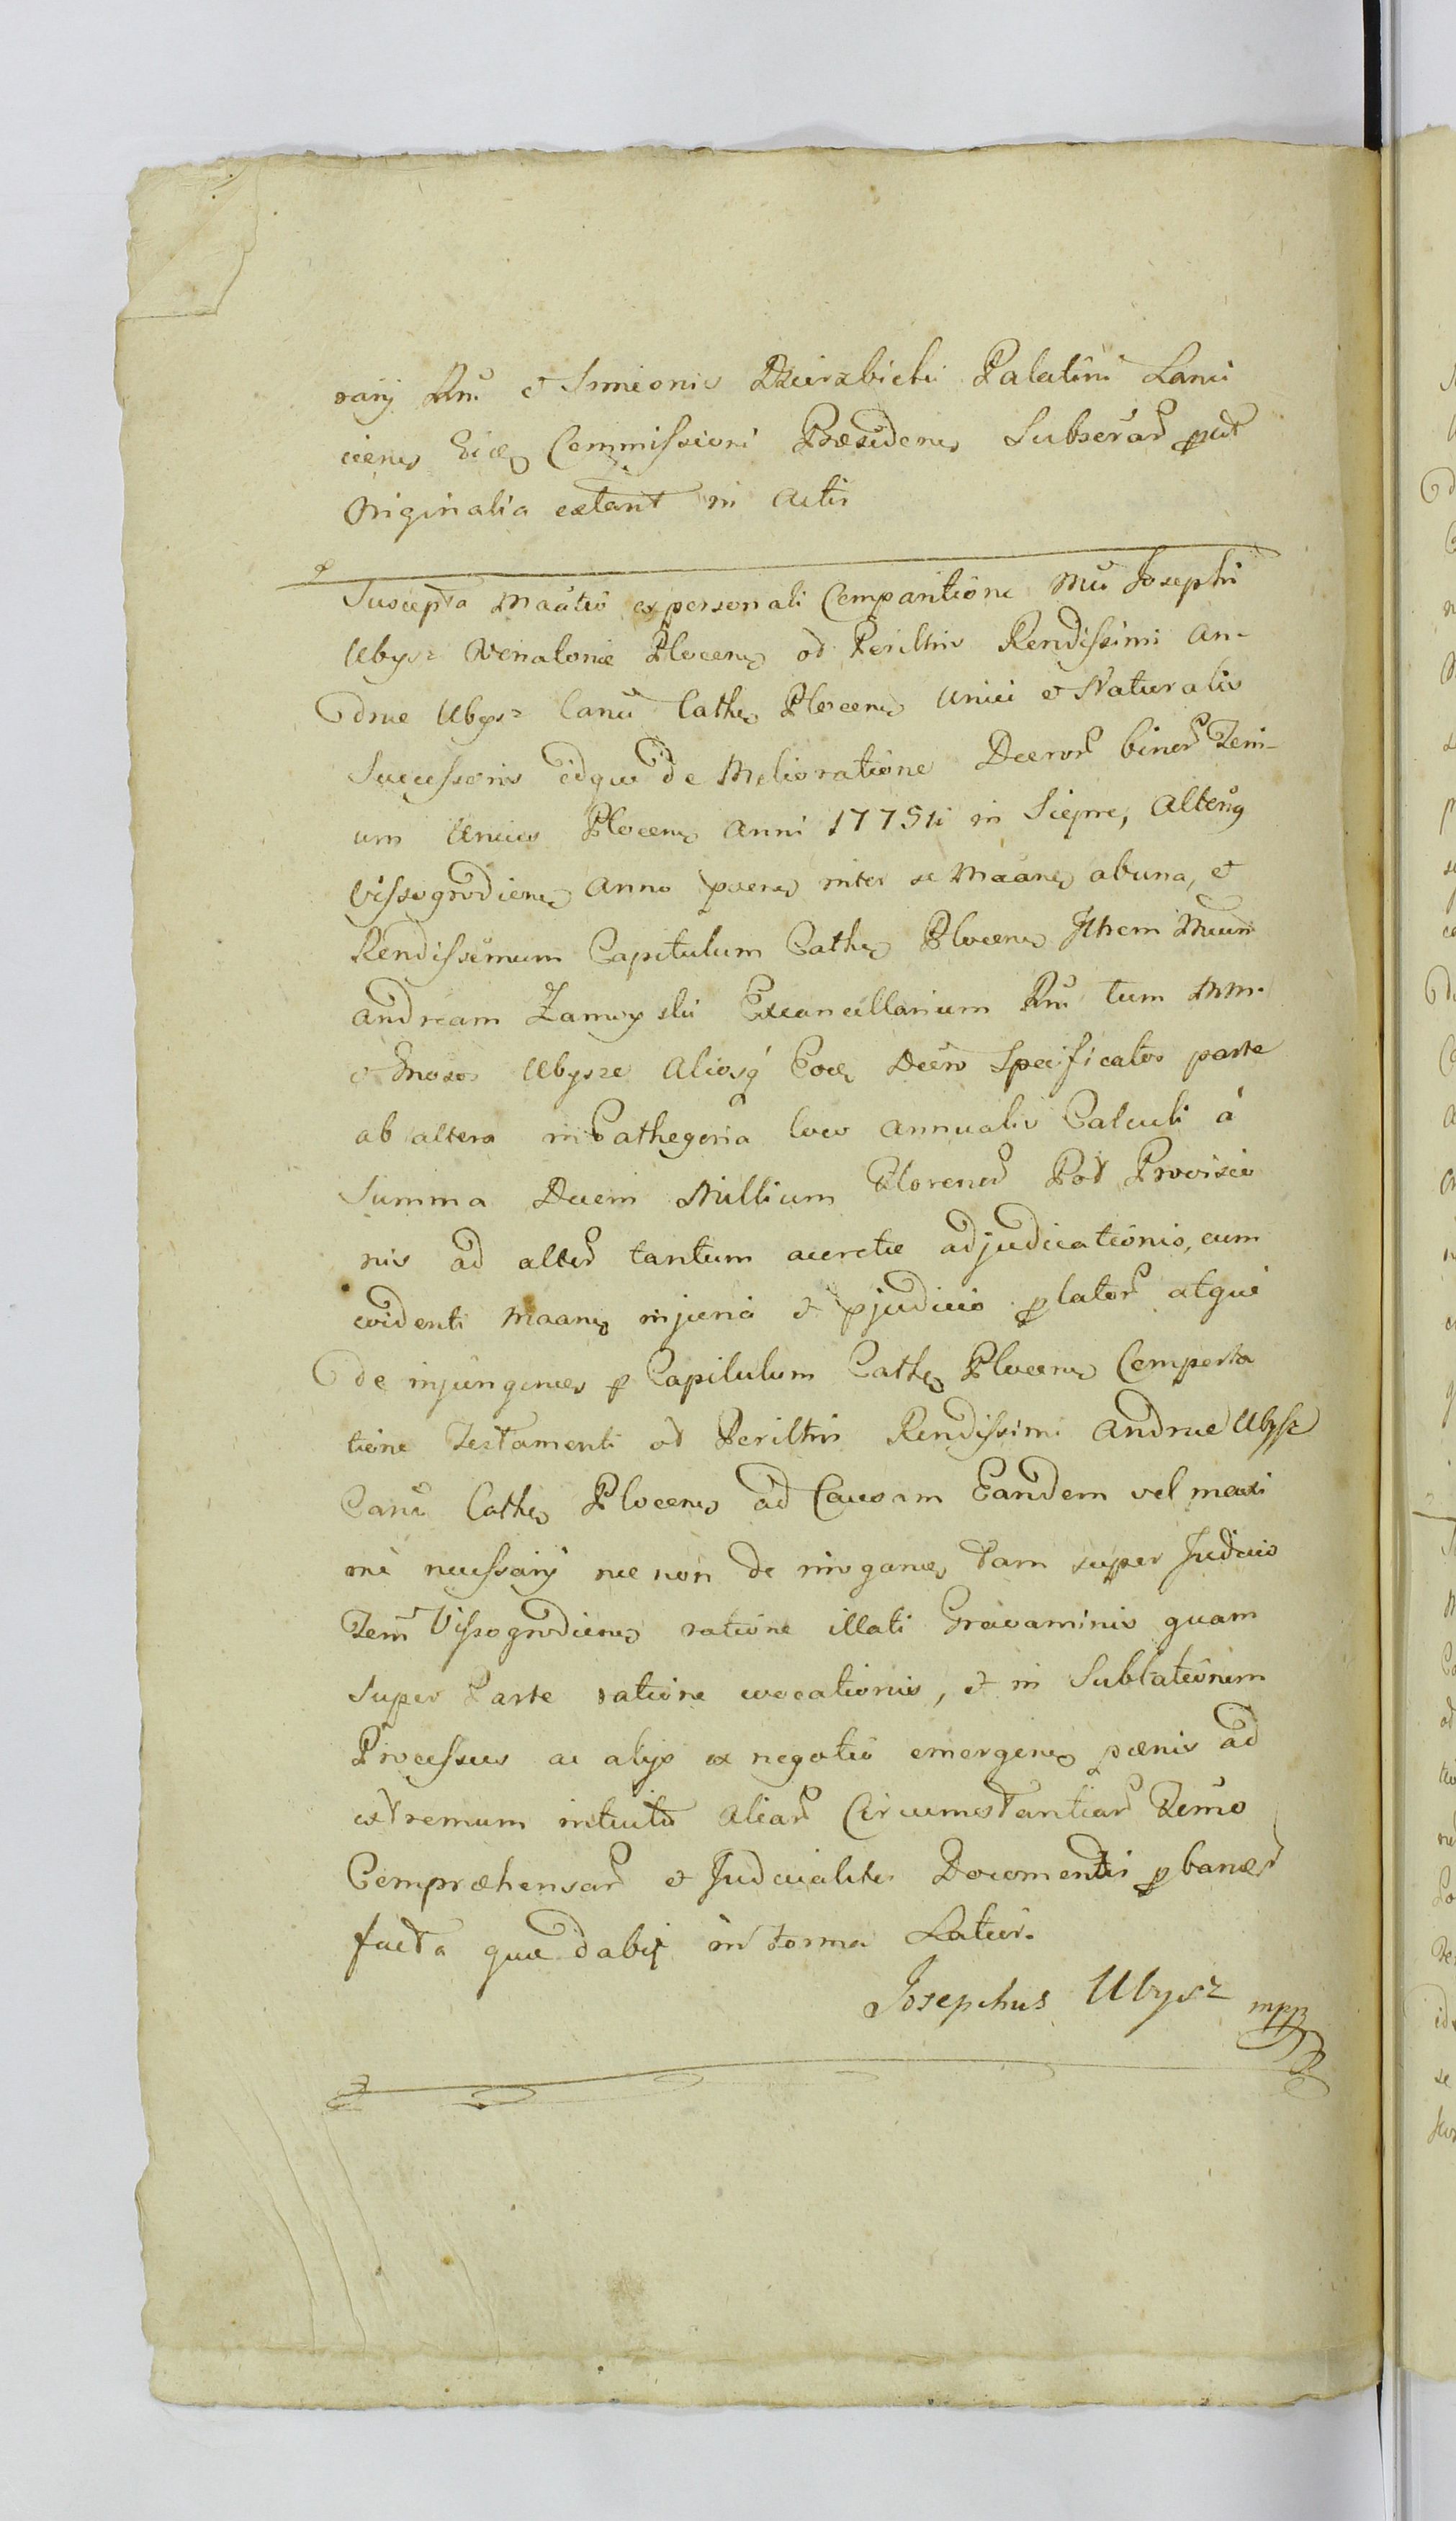 rarij Rni et Simeonis Dzierzbicki Palatini Lanci
ciens Eidq Commissioni Præsidens Subscrār prout
Originalia extant in Actis
Suscepta Maātio ex personali Comparitione Mci Josephi
Ubysz Venatoris Plocens od Perilltris Rendissimi An-
dreæ Ubysz Canci Cathis Plocens Unici et Naturalis
Successoris idque de Melioratione Decror binor Terri-
um Unius Plocens Anni 1775ti in Sierpc, Alterius
Vissogrodiens Anno præns inter se Maans ab una, et
Rendissimum Capitulum Cathis Plocens Ittem Mcum
Andream Zamoyski Excancellarium Rni tum MM.
et Gnosos Ubysze Aliosq Eodq Decro Specificatos parte
ab altera in Cathegoria loco annualis Calculi à
Summa Decem Millium Florenor Pol Provisio
nis ad alter tantum accretæ adjudicationis, cum
evidenti Maans injuria et pjudicio plator atque
de injungenes p Capitulum Cathis Plocens Comporta
tione Testamenti od Perilltris Rendissimi Andreæ Ubysz
Canci Cathis Plocens ad Causam Eandem vel maxi
mè necessarij nec non de irrogans tam super Judicio
Terri Vissogrodiens ratione illati Gravaminis quam
super Parte ratione evocationis, et in Sublationem
Processus ac alijs ex negotio emergens pænis ad
extremum intuitu aliar Circumstantiar Temo
Compræhensar et Judicialiter Documentis pbands
facta quæ dabit in forma Latior.
Josephus Ubysz mpp